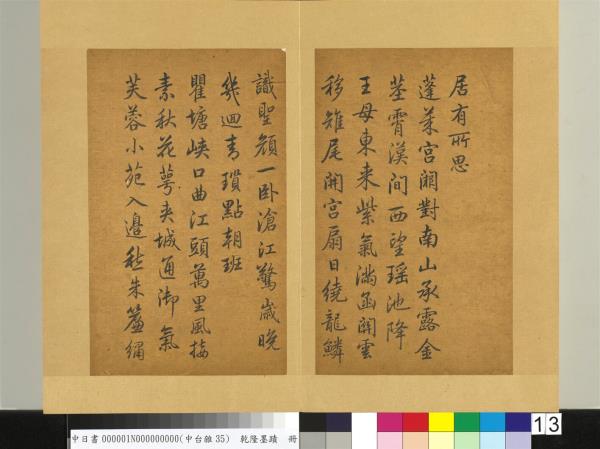 居有所思
蓬萊宮闕對南山承露金
莖霄漢間西望瑤池降
王母東来紫氣滿函關雲
移雉尾開宮扇日繞龍鱗
識聖顏一卧滄江驚歲晚
幾迴青瑣點朝班
瞿塘峽口曲江頭萬里風接
素秋花萼夾城通御氣
芙蓉小苑入邊愁朱簾繡
中日書000001N000000000(中台雜35) 乾隆墨蹟 冊
13